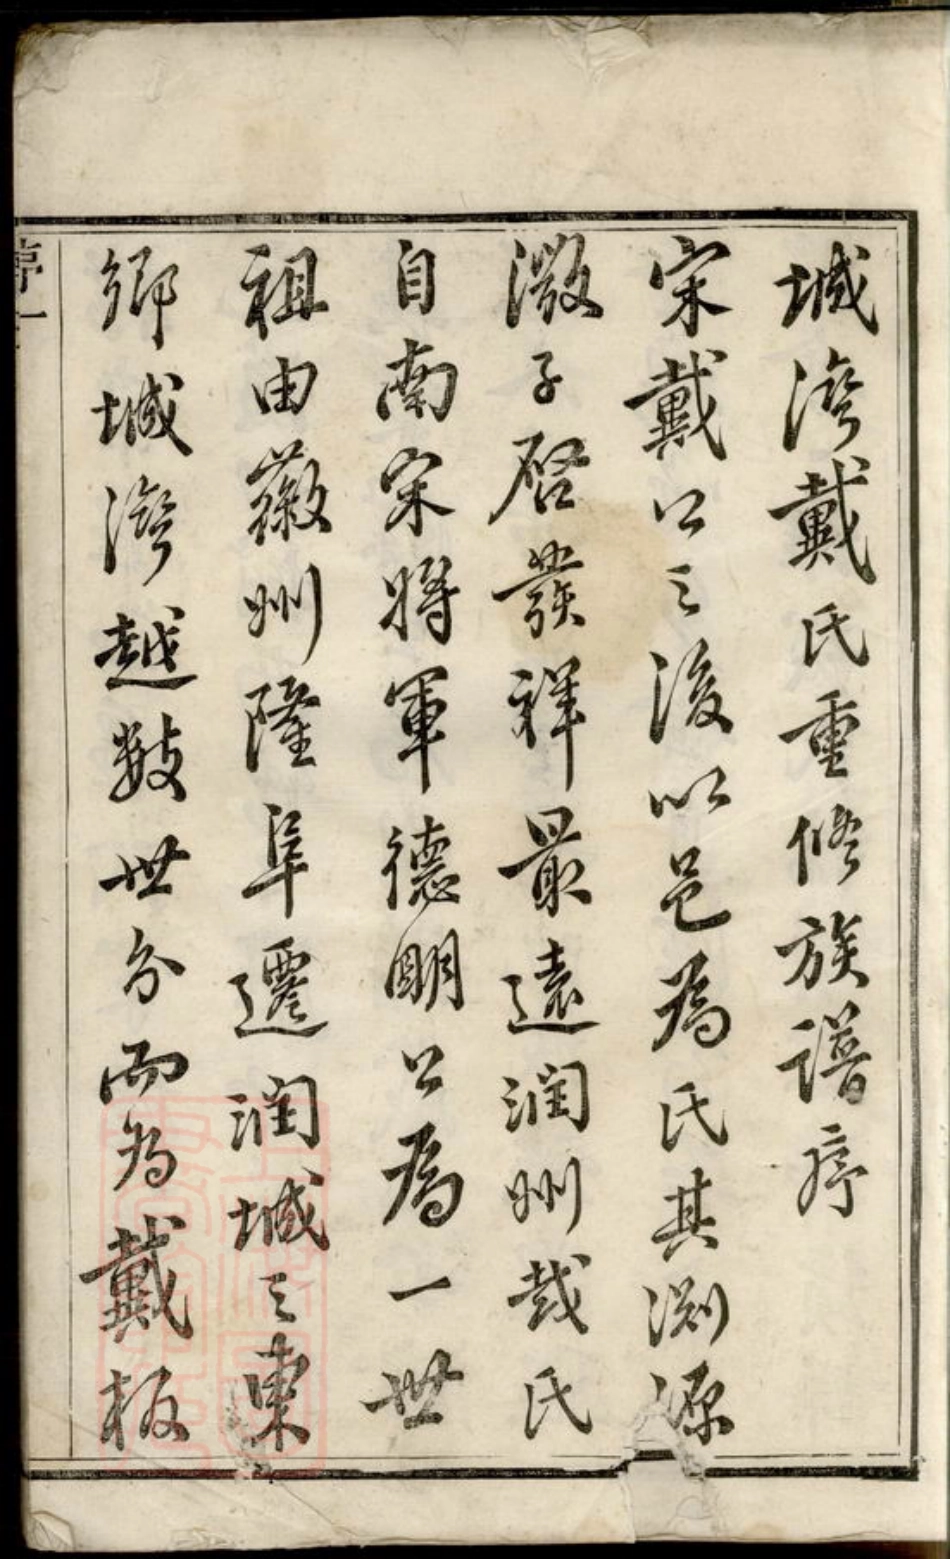 城灣戴氏重修族譜序
宋戴公之後以邑為氏其淵源
溦子啓發祥最遠潤州戴氏
自南宋將軍德明公為一世
祖由徽州隆阜遷潤城之東
鄉城灣越數世分而為戴板
序一